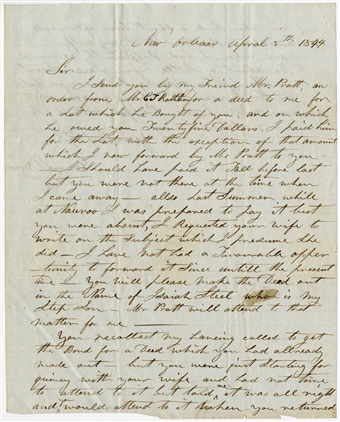 New Orleans April 5th 1844
Sir
I Send you by my Friend Mr. Pratt, an
order from Mr for a deed to me for
a Lot which he Bought of you, and on which
he owed you Twentyfive Dollars, I paid him
for the Lot, with the exception of that amount
which I now forward by Mr Pratt to you
I Should have paid it Fall before last
but you were not there at the time when
I came away — also Last Summer, while
at Nauvoo I was prepared to pay it but
you were absent, I Requested your wife to
write on the Subject which I presume She
did — I have not had a Favorable oppor
tunity to forward it Since untill the present
time — you will please make the Deed out
in the Name of Steel who is my
Step Son Mr Pratt will attend to that
matter for me
You recollect my having called to get
the Bond for a Deed which you had allready
made out but you were just Starting for
quincy with your wife and had not time
to attend to it but told me it was all right
and would attend to it when you returned